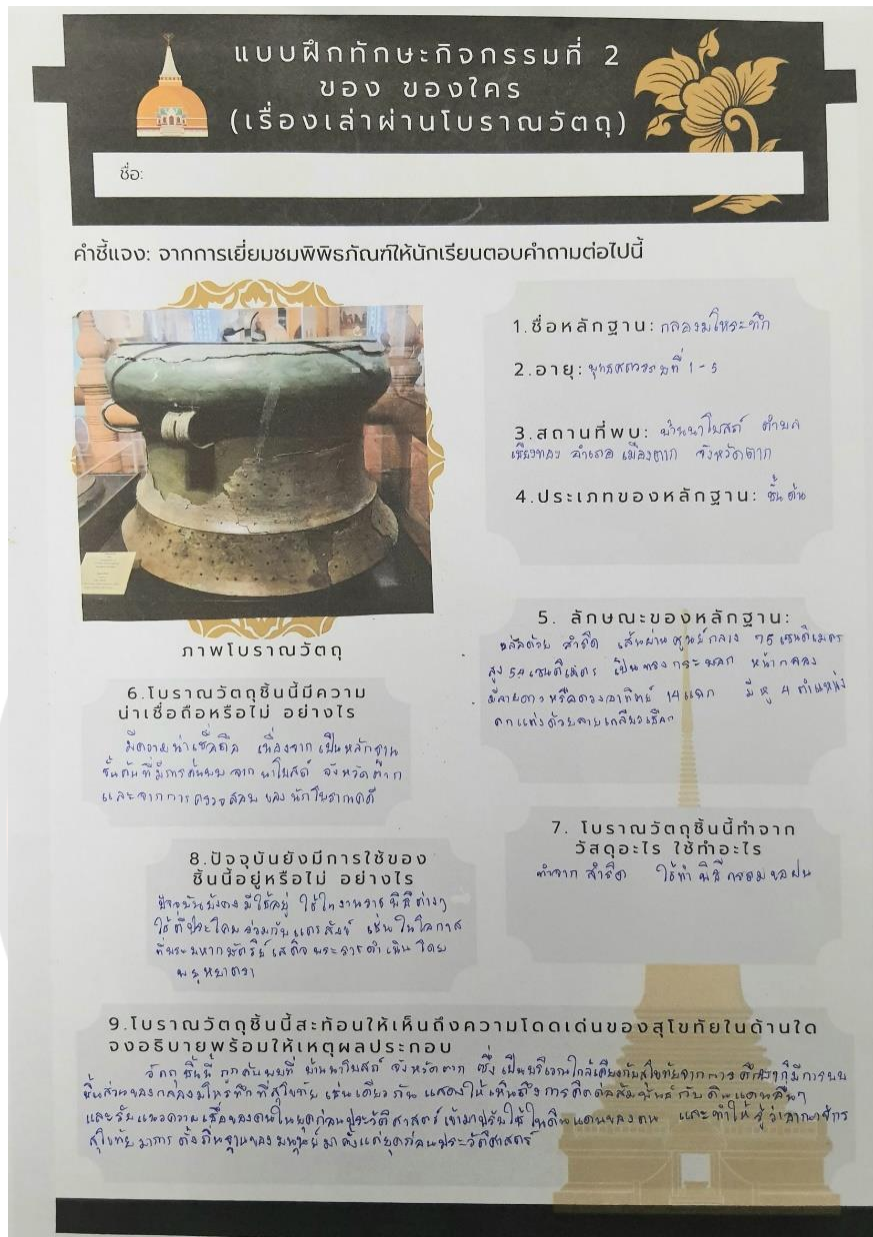 แบบฝึกทักษะกิจกรรมที่ 2
ของ ของใคร
(เรื่องเล่าผ่านโบราณวัตถุ)
ชื่อ:
คำชี้แจง: จากการเยี่ยมชมพิพิธภัณฑ์ให้นักเรียนตอบคำถามต่อไปนี้
1.ชื่อหลักฐาน: กลองมโหระทึก
2.อายุ: พุทธศตวรรษที่ 1-5
3.สถานที่พบ: บ้านนาโบสถ์ ตำบล
เชียงทอง อำเภอ เมืองตาก จังหวัดตาก
4.ประเภทของหลักฐาน: ชั้นต้น
ภาพโบราณวัตถุ
5. ลักษณะของหลักฐาน:
ผลิตด้วย สำริด เส้นผ่านศูนย์กลาง 75 เซนติเมตร
สูง 54 เซนติเมตร เป็นทรงกระบอก หน้ากลอง
มีลายดาวหรือดวงอาทิตย์ 14 แฉก มีหู 4 ตำแหน่ง
ตกแต่งด้วยลายเกลียวเชือก
6.โบราณวัตถุชิ้นนี้มีความ
น่าเชื่อถือหรือไม่ อย่างไร
มีความน่าเชื่อถือ เนื่องจากเป็นหลักฐาน
ชั้นต้นที่มีการค้นพบจากนาโบสถ์ จังหวัดตาก
และจากการตรวจสอบของนักโบราณคดี
7. โบราณวัตถุชิ้นนี้ทำจาก
วัสดุอะไร ใช้ทำอะไร
ทำจาก สำริด ใช้ทำพิธีกรรมขอฝน
8.ปัจจุบันยังมีการใช้ของ
ชิ้นนี้อยู่หรือไม่ อย่างไร
ปัจจุบันยังคงมีใช้อยู่ ใช้ในงานราชพิธีต่างๆ
ใช้ตีประโคมร่วมกับแตรสังข์ เช่นในโอกาส
ที่พระมหากษัตริย์เสด็จพระราชดำเนินโดย
พยุหยาตรา
9.โบราณวัตถุชิ้นนี้สะท้อนให้เห็นถึงความโดดเด่นของสุโขทัยในด้านใด
จงอธิบายพร้อมให้เหตุผลประกอบ
วัตถุชิ้นนี้ ถูกค้นพบที่ บ้านนาโบสถ์ จังหวัดตาก ซึ่งเป็นบริเวณใกล้เคียงกับสุโขทัยจากการศึกษาก็มีการพบ
ชิ้นส่วนของกลองมโหระทึกที่สุโขทัย เช่นเดียวกัน แสดงให้เห็นถึงการติดต่อสัมพันธ์กับดินแดนอื่นๆ
และรับแนวความเชื่อของคนในยุคก่อนประวัติศาสตร์เข้ามาปรับใช้ในดินแดนของตน และทำให้รู้ว่าอาณาจักร
สุโขทัยมีการตั้งถิ่นฐานของมนุษย์มาตั้งแต่ยุคก่อนประวัติศาสตร์